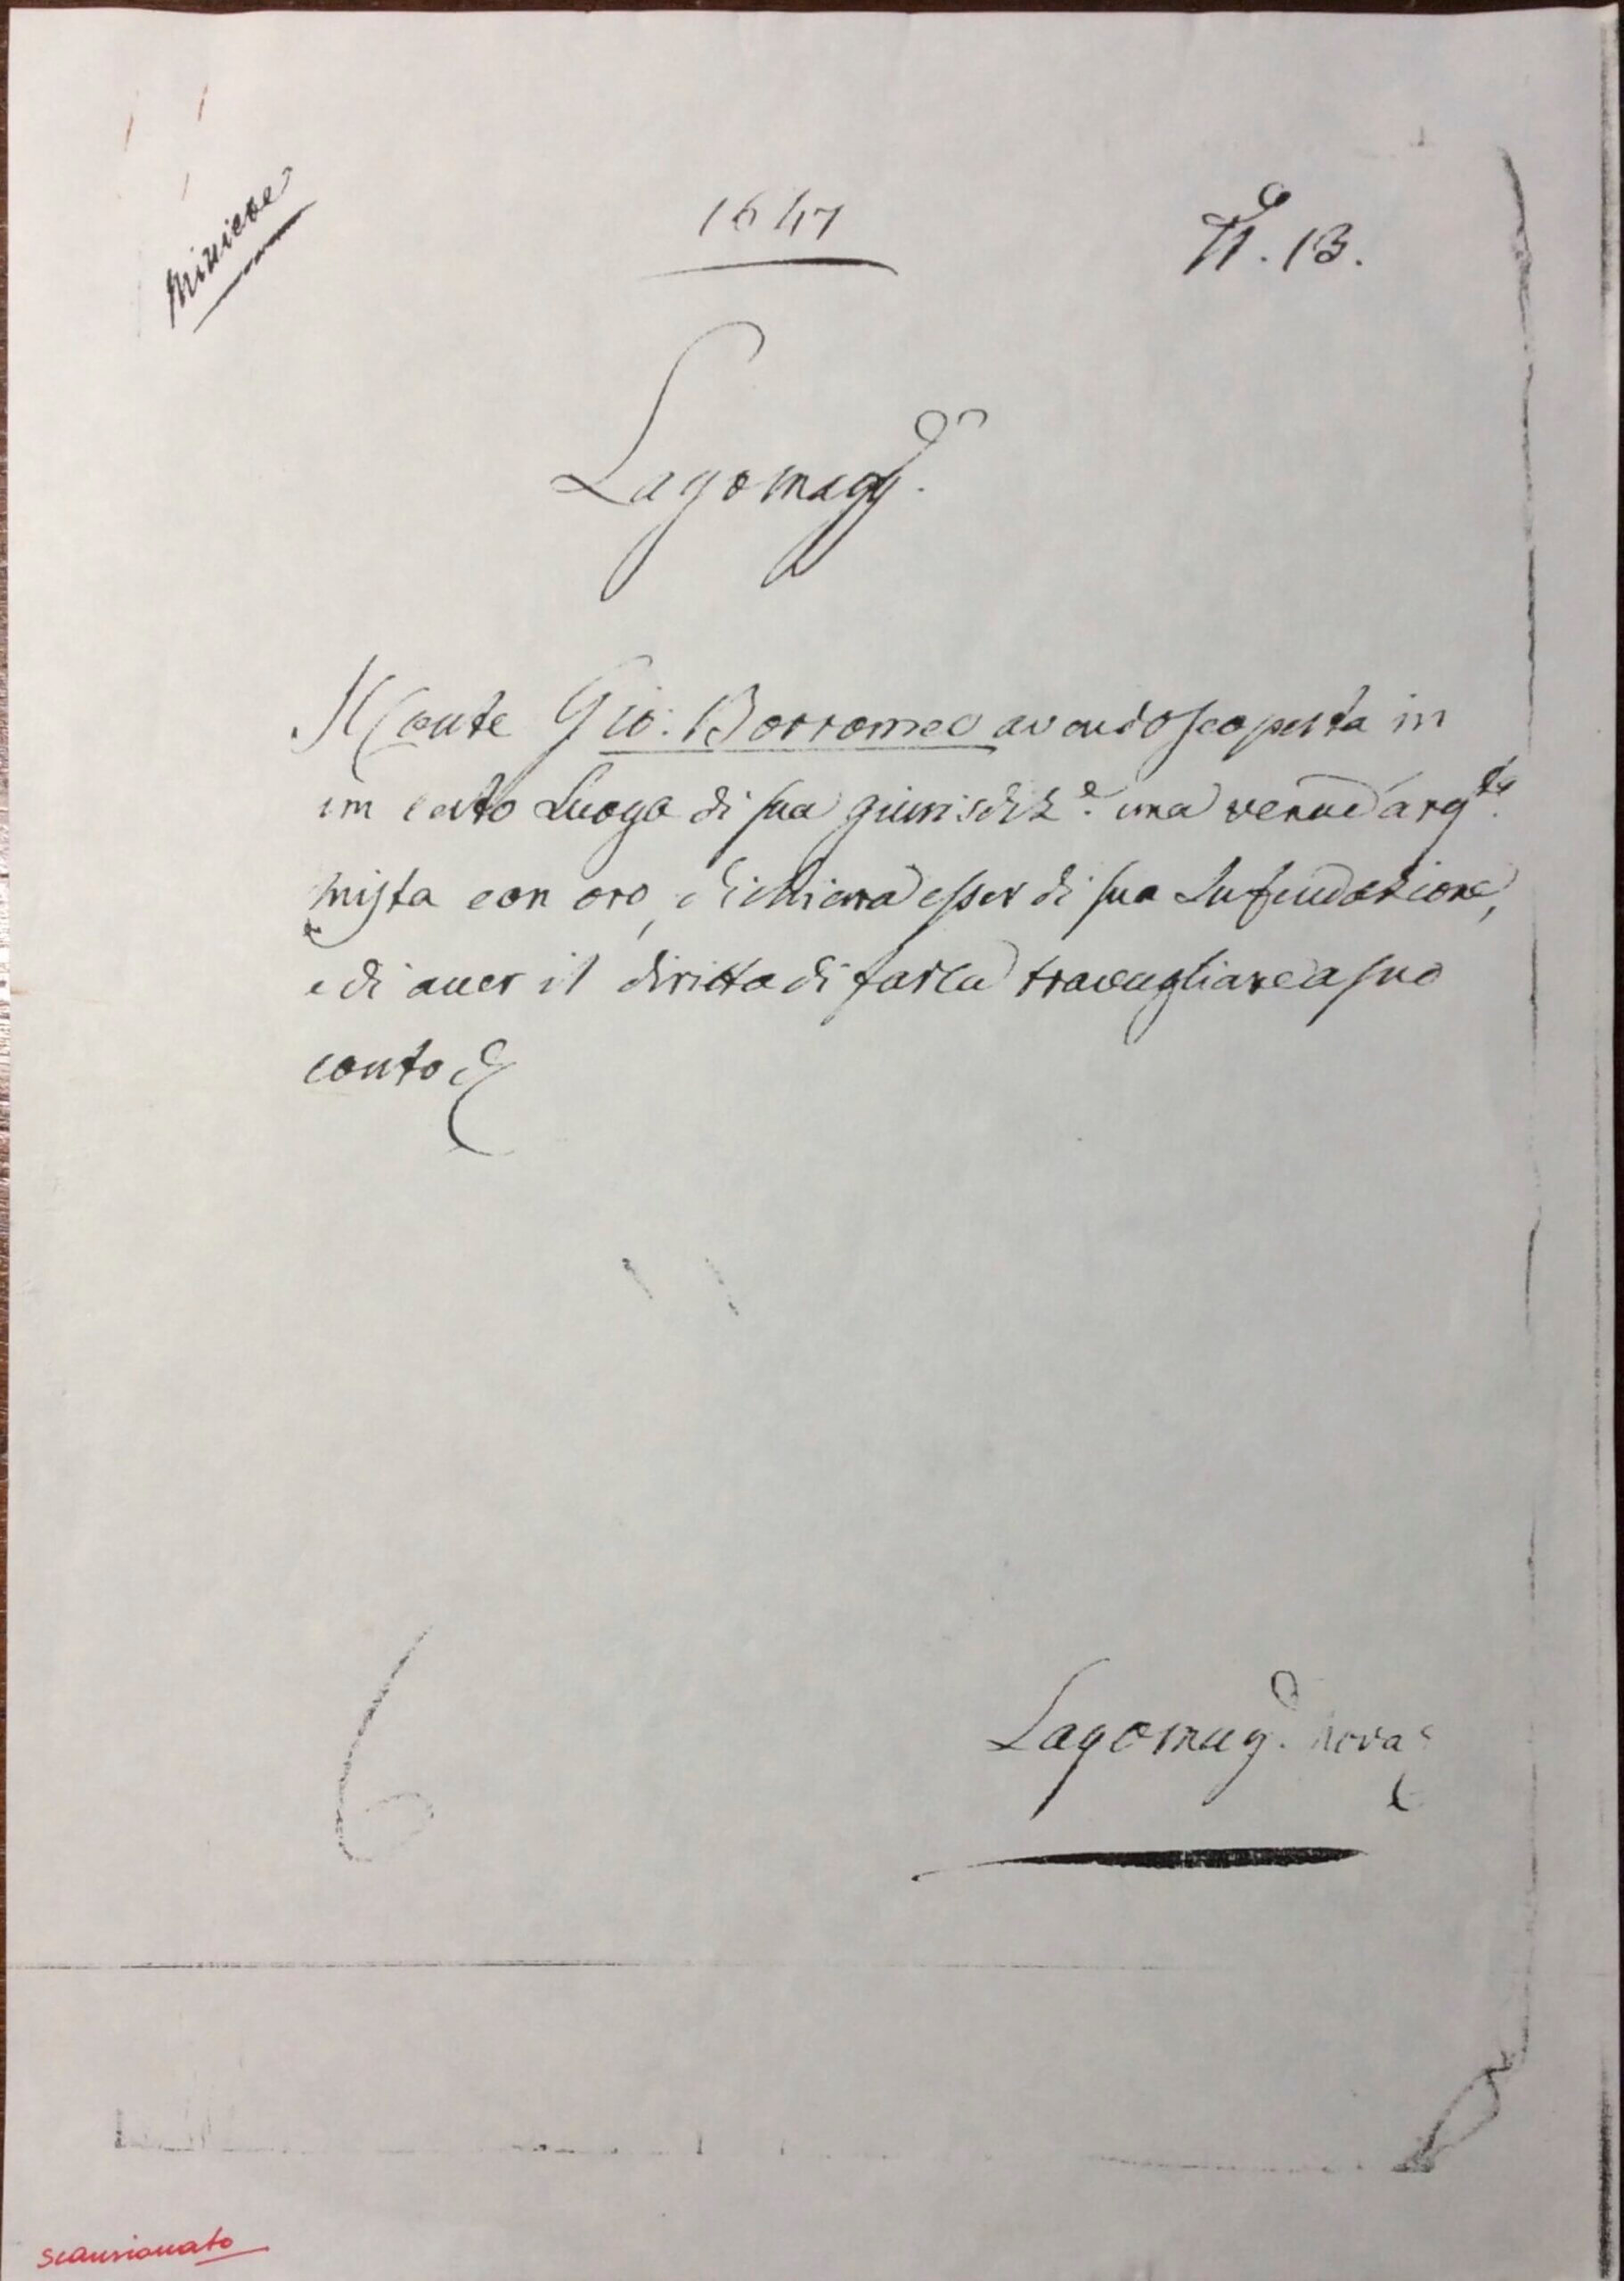 Miniere
1647
N.° 13.
Lagomagg.
Il Conte Gio: Borromeo avendo scoperta in
un certo Luogo di sua giurisdiz.e una vena d'arg.to
mista con oro, dichiara esser di sua Infeudazione,
e di aver il diritto di farla travagliare a suo
conto &
Lagomag.
6
scansionato